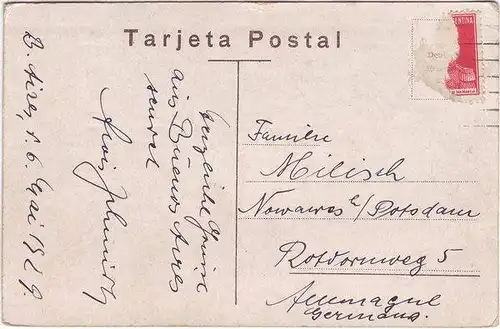 Tarjeta Postal
ENTINA
B. Aires, d. 6. Mai 1929.
herzliche Grüsse
aus Buenos Aires
sendet
Familie
Milisch
Nowawes b/Potsdam
Rotdornweg 5
Allemagne
Germania.